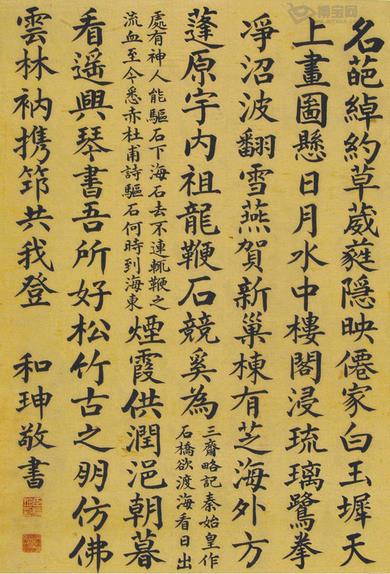 名葩綽約草葳蕤隱映僊家白玉墀天
上畫圖懸日月水中樓閣浸琉璃鷺拳
淨沼波翻雪燕賀新巢棟有芝海外方
蓬原宇內祖龍鞭石競奚為三齊略記秦始皇作石橋欲渡海看日出
處有神人能驅石下海石去不速輒鞭之流血至今悉赤杜甫詩驅石何時到海東煙霞供潤浥朝暮
看遙興琴書吾所好松竹古之朋仿佛
雲林衲携筇共我登 和珅敬書